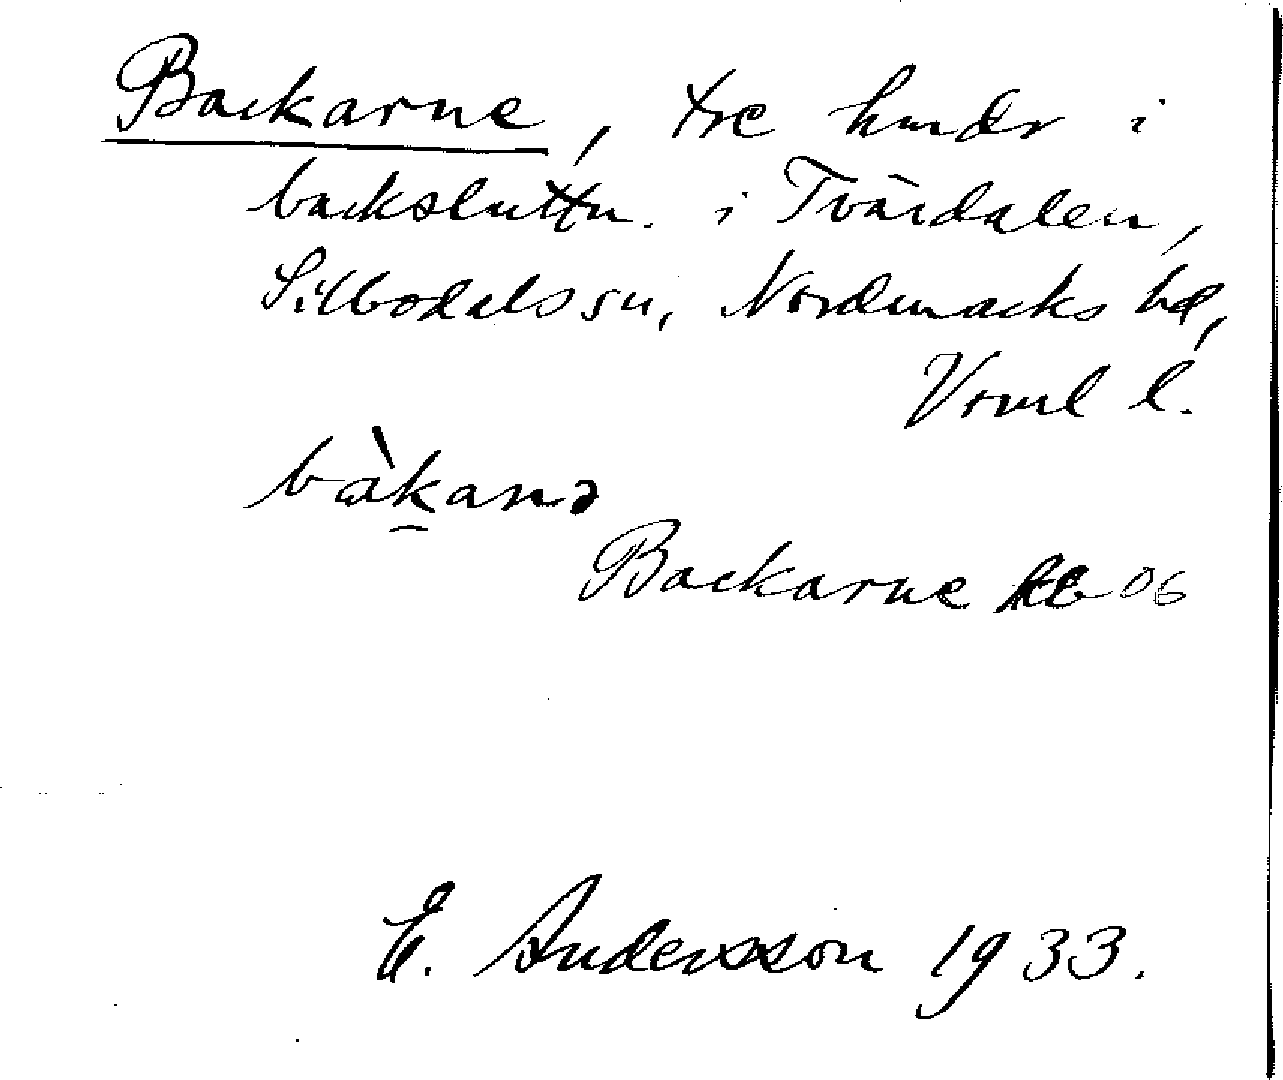 Backarne, tre hmdr i
backsluttn. i Tvärdalen,
Silbodals sn, Nordmarks hd,
Vrml l.
bàkanə
Backarne 06
E. Andersson 1933.